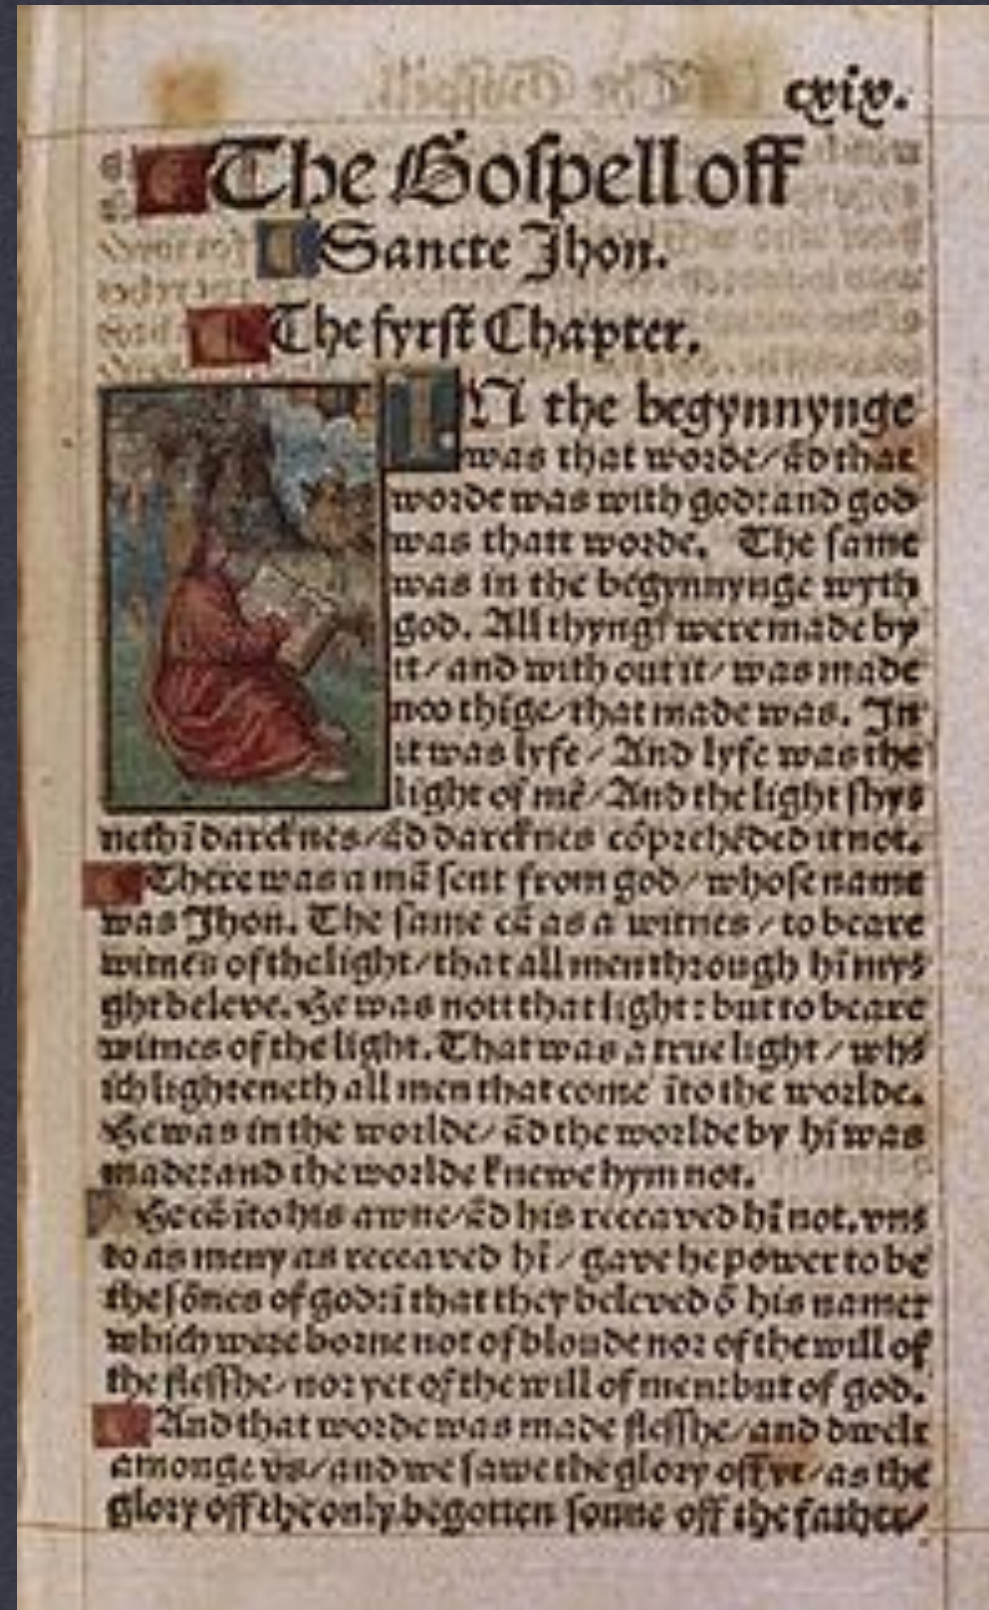 cxix.
The Gospell off
Sancte Jhon.
The fyrst Chapter.
IN the begynnynge
was that worde/ ād that
worde was with god: and god
was thatt worde. The same
was in the begynnynge wyth
god. All thyngꝭ were made by
it/ and with out it/ was made
noo thīge/ that made was. In
it was lyfe/ And lyfe was the
light of mē/ And the light shys
neth ī darcknes/ ād darcknes cōprehēded it not.
There was a mā sent from god/ whose name
was Jhon. The same cā as a witnes/ to beare
witnes of the light/ that all men through hī mys
ght beleve. He was nott that light: but to beare
witnes of the light. That was a true light/ whs
ich lighteneth all men that come īto the worlde.
He was in the worlde/ ād the worlde by hī was
made: and the worlde knewe hym not.
He cā īto his awne/ ād his receaved hī not. vns
to as meny as receaved hī/ gave he power to be
the sōnes of god: ī that they beleved ō his name:
which were borne not of bloude nor of the will of
the flesshe/ nor yet of the will of men: but of god.
And that worde was made flesshe/ and dwelt
amonge vs/ and we sawe the glory off yt/ as the
glory off the only begotten sonne off the father/